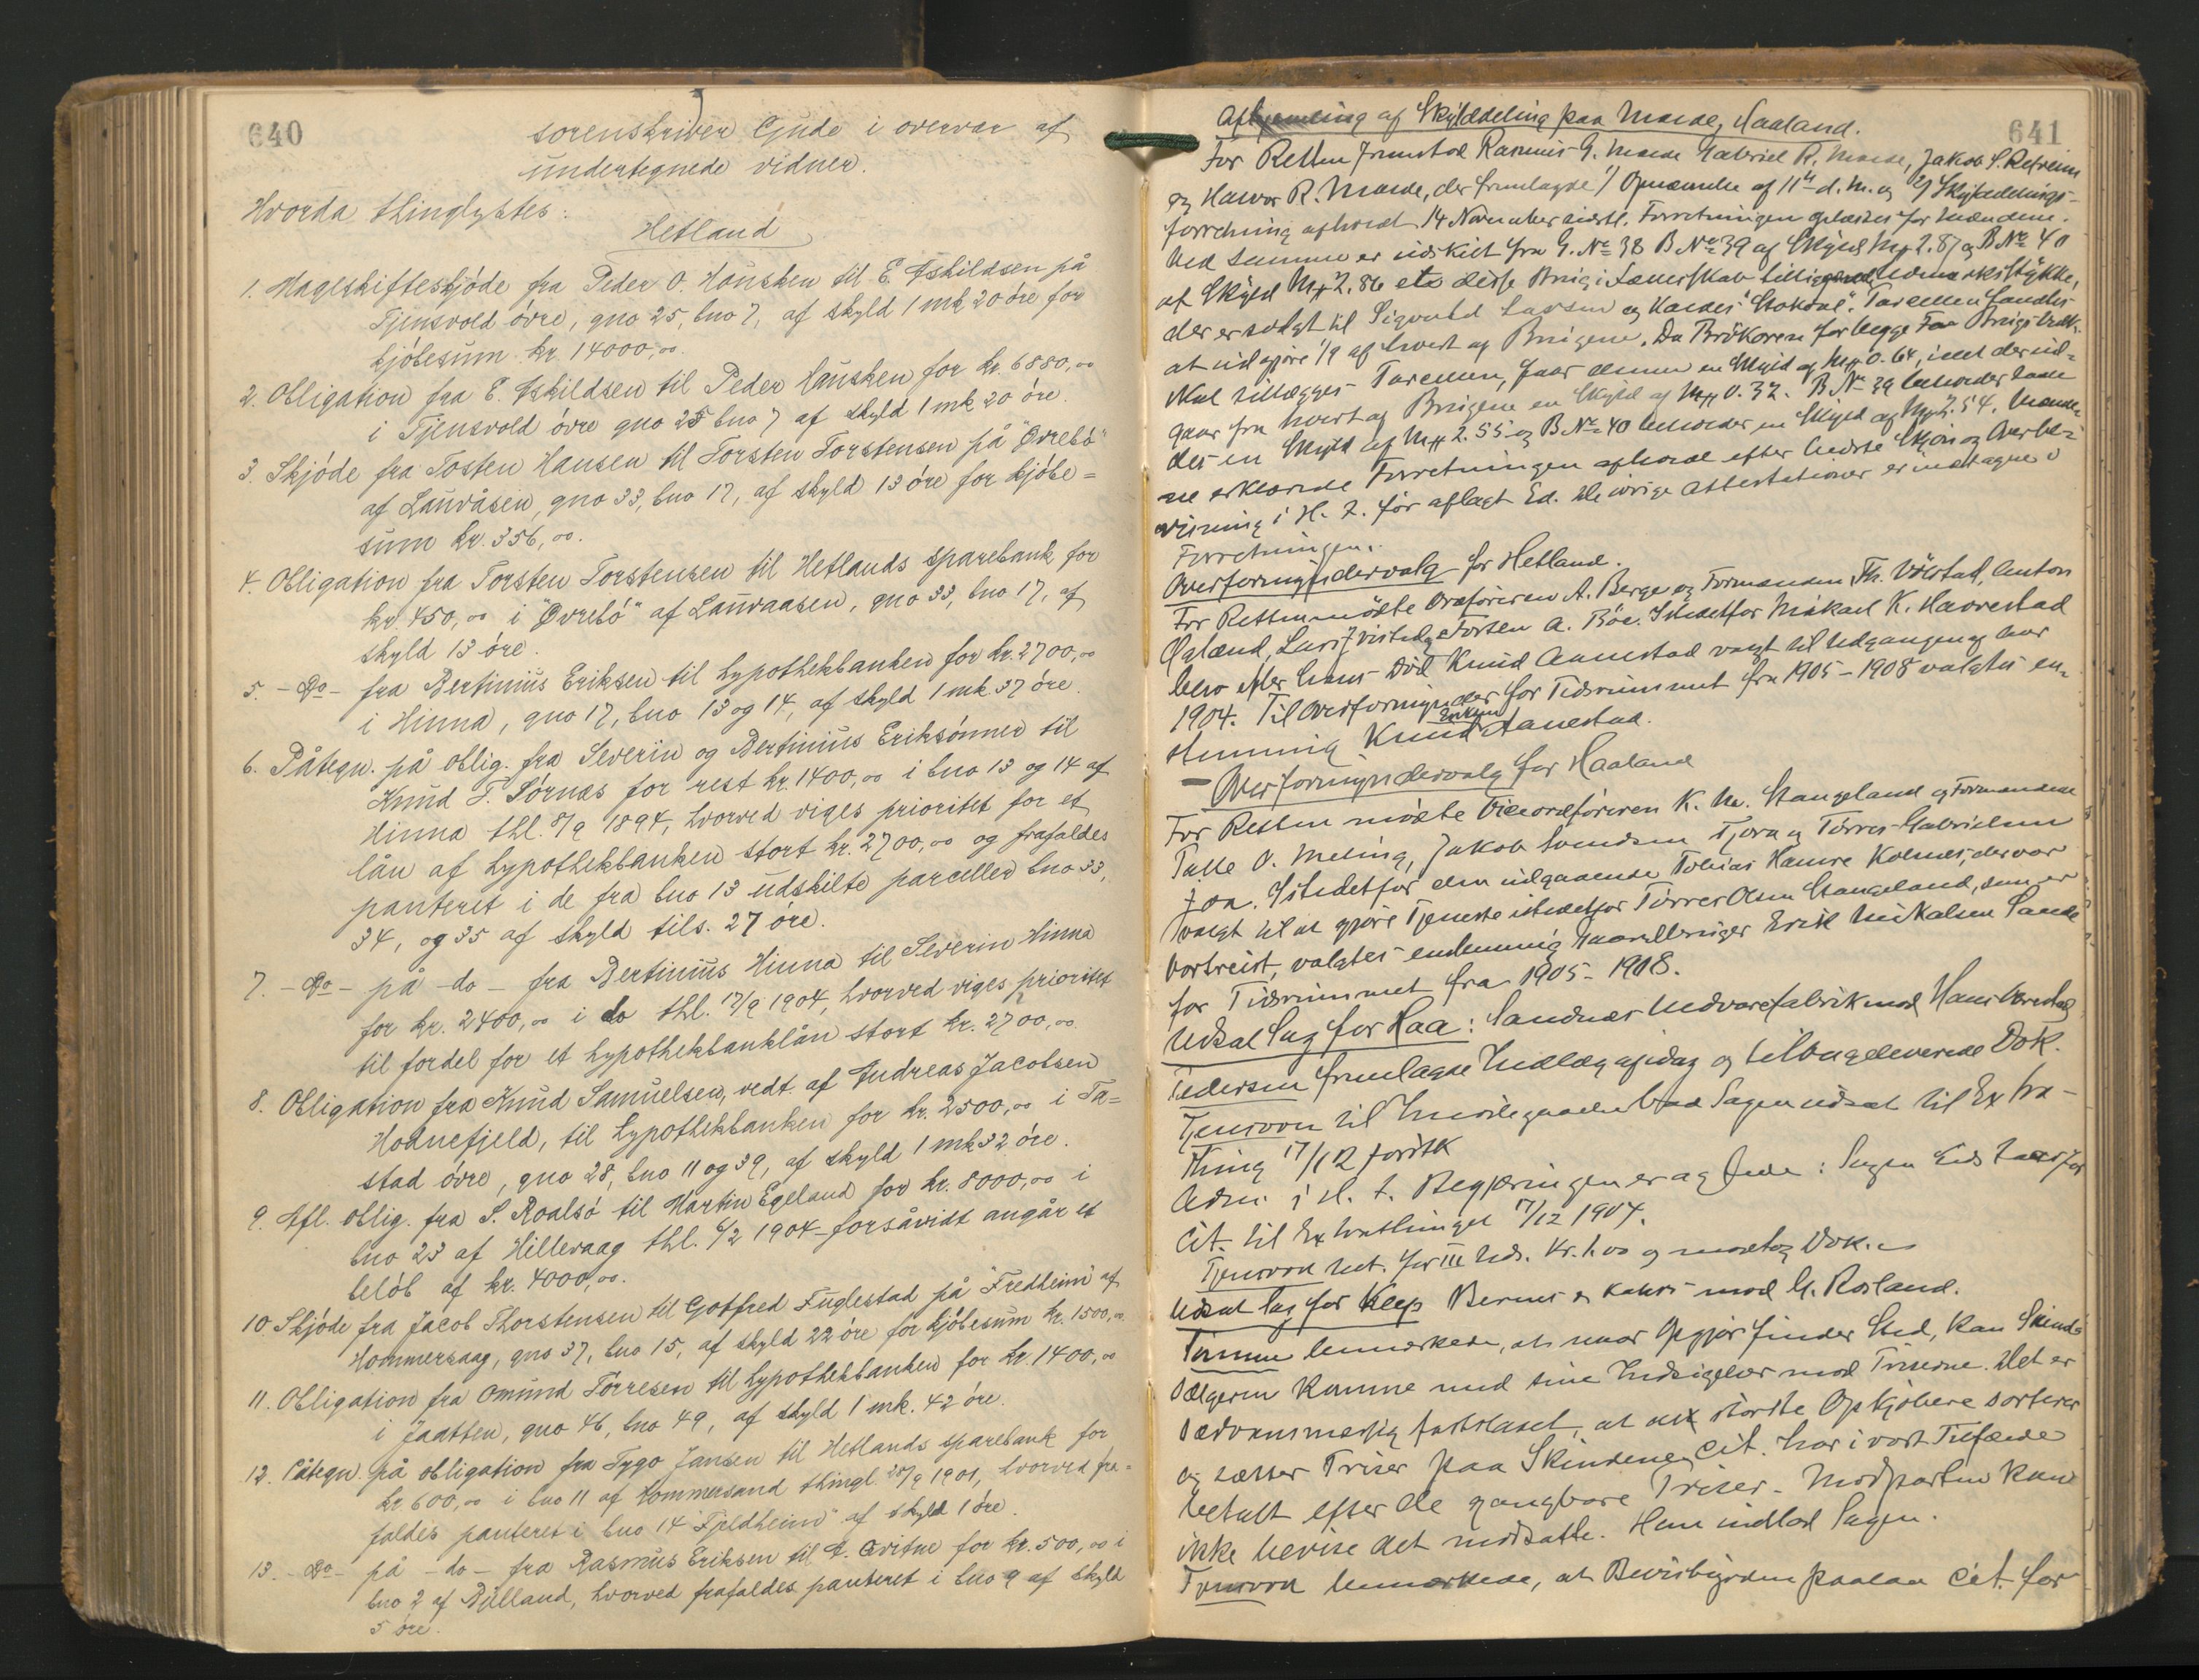 640
sorenskriver Gjude i overvær af
undertegnede vidner.
Hvorda thinglystes:
Hetland
1. Mageskifteskjöde fra Peder O. Hausken til E. Eskildsen på
Tjensvold övre, gno 25, bno 7, af skyld 1 mk 20 öre for
kjöbesum kr. 14000,00
2. Obligation fra E. Eskildsen til Peder Hausken for kr. 6880,00
i Tjensvold övre gno 25 bno 7 af skyld 1 mk 20 öre.
3. Skjöde fra Tosten Hansen til Torsten Torstensen på "Övrebö"
af Lauvåsen, gno 33, bno 17, af skyld 13 öre for kjöbe=
sum kr. 356,00.
4. Obligation fra Torsten Torstensen til Hetlands sparebank for
kr. 450,00 i "Övrebö" af Lauvaasen, gno 33, bno 17, af
skyld 13 öre.
5. - Do - fra Bertinius Eriksen til hypothekbanken for kr. 2700,00
i Hinna, gno 17, bno 13 og 14, af skyld 1 mk 37 öre.
6. Påtegn. på oblig. fra Severin og Bertinius Eriksönner til
Knud T. Sörnæs for rest kr. 1400,00 i bno 13 og 14 af
Hinna thl. 8/9 1894, hvorved viges prioritet for et
lån af hypothekbanken stort kr. 2700,00 og frafaldes
panteret i de fra bno 13 udskilte parceller bno 33,
34, og 35 af skyld tils. 27 öre.
7. - Do - på - do - fra Bertinius Hinna til Severin Hinna
for kr. 2400,00 i do thl. 17/9 1904, hvorved viges prioritet
til fordel for et hypothekbanklån stort kr. 2700,00.
8. Obligation fra Knud Samuelsen, vedt. af Andreas Jacobsen
Hodnefjeld, til hypothekbanken for kr. 2500,00 i Ta=
stad övre, gno 28, bno 11 og 39, af skyld 1 mk 32 öre.
9. Afl. oblig. fra S. Roalsö til Martin Egeland for kr. 8000,00 i
bno 23 af Hillevaag thl. 6/2 1904 forsåvidt angår et
belöb af kr. 4000,00.
10 Skjöde fra Jacob Thorstensen til Gotfred Fuglestad på "Fredheim" af
Hommersaag, gno 37, bno 15, af skyld 22 öre for kjöbesum kr. 1500,00
11. Obligation fra Omund Törresen til hypothekbanken for kr. 1400,00
i Jaatten, gno 46, bno 49, af skyld 1 mk. 42 öre.
12. Påtegn. på obligation fra Tygo Jansen til Hetlands sparebank for
kr 600,00 i bno 11 af Hommersand thingl. 28/9 1901, hvorved fra=
faldes panteret i bno 14 "Fjeldheim" af skyld 1 öre.
13. - Do - på - do - fra Rasmus Eriksen til T. Gritne for kr. 500,00 i
bno 2 af Bjelland, hvorved frafaldes panteret i bno 9 af skyld
5 öre.
641
Afhjemling af Skylddeling paa Malde, Haaland.
For Retten fremstod Rasmus G. Malde Gabriel R. Malde, Jakob S. Refheim
og Haavar R. Malde, der fremlagde 1/ Opnævnelse af 11te d. M. og 2/ Skylddelings-
forretning afholdt 14 November sidstl. Forretningen oplæstes for Mændene.
Ved samme er udskilt fra G. No 38 B No 39 af Skyld Mk 2.87 og B No 40
af Skyld Mk 2.86 disse Brug i Sameiskab tilliggende Udmarksstykke,
der er solgt til Sigvald Larsen og kaldes "Stokdal". Parcellen fandtes
at udgjøre 1/9 af hvert af Brugene. Da Brökoren for begge Brugs Vedk.
skal tillægges Parcellen, faar denne en Skyld af Mk 0.64, idet der ud-
gaar fra hvert af Brugene en Skyld af Mk 0.32. B No 39 beholder saale
des en Skyld af Mk 2.55 og B No 40 beholder en Skyld af Mk 2.54. Mænde-
ne erklærede Forretningen afholdt efter bedste Skjön og Overbe=
visning i H. t. før aflagt Ed. De övrige Attestationer er indtagne i
Forretningen.
Overformyndervalg for Hetland.
For Retten mödte Ordföreren A. Berge og Formænden Th. Völstad, Anton
Ogland, Lars Tvisted og Torsten A. Böe. Istedetfor Mikael K. Haverstad
blev efter hans Död Knud Aanestad valgt til Udgangen af Aar
1904. Til Overformynder for Tidsrummet fra 1905-1908 valgtes en-
stemmig Knud Eriksen Aanestad.
- Overformyndervalg for Haaland
For Retten mödte Viceordföreren K. M. Stangeland og Formændene
Talle O. Meling, Jakob Svendsen Tjora og Törres Gabrielsen
Joa. Istedetfor den udgaaende Tobias Hansre Kolnes, der var
valgt til at gjöre Tjeneste istedetfor Törres Olsen Stangeland, som er
bortreist, valgtes enstemmig Gaardbruger Erik Mikalsen Sande
for Tidsrummet fra 1905-1908.
Udsat Sag for Haa: Sandnæs Uldvarefabrik mod Hans Varehaug
Pedersen fremlagde Indlæg af idag og tilbageleverede Dok.
Tjensvon til Imödegaaelse bad Sagen udsat til Extra-
thing 17/12 förstk
Adm. i H. t. Begjæringen er afgivne: Sagen udsættes for
Cit. til Extrathinget 17/12 1904.
Tjensvon bet. for III Uds. Kr. 1.00 og modtog Dok.
Udsat Sag for Klep Berner & Kahrs mod G. Rosland.
Tömme bemærkede, at naar Opgjör finder Sted, kan Skind-
sælgeren komme med sine Indsigelser mod Priserne. Det er
sædvansmæssig fastslaaet, at de störste Opkjöbere sorterer
og sætter Priser paa Skindene. Cit. har i vort Tilfælde
betalt efter de gangbare Priser. Modparten kan
ikke bevise det modsatte. Han indlod Sagen.
Tjensvon bemærkede, at Bevisbyrden paalaa Cit. for